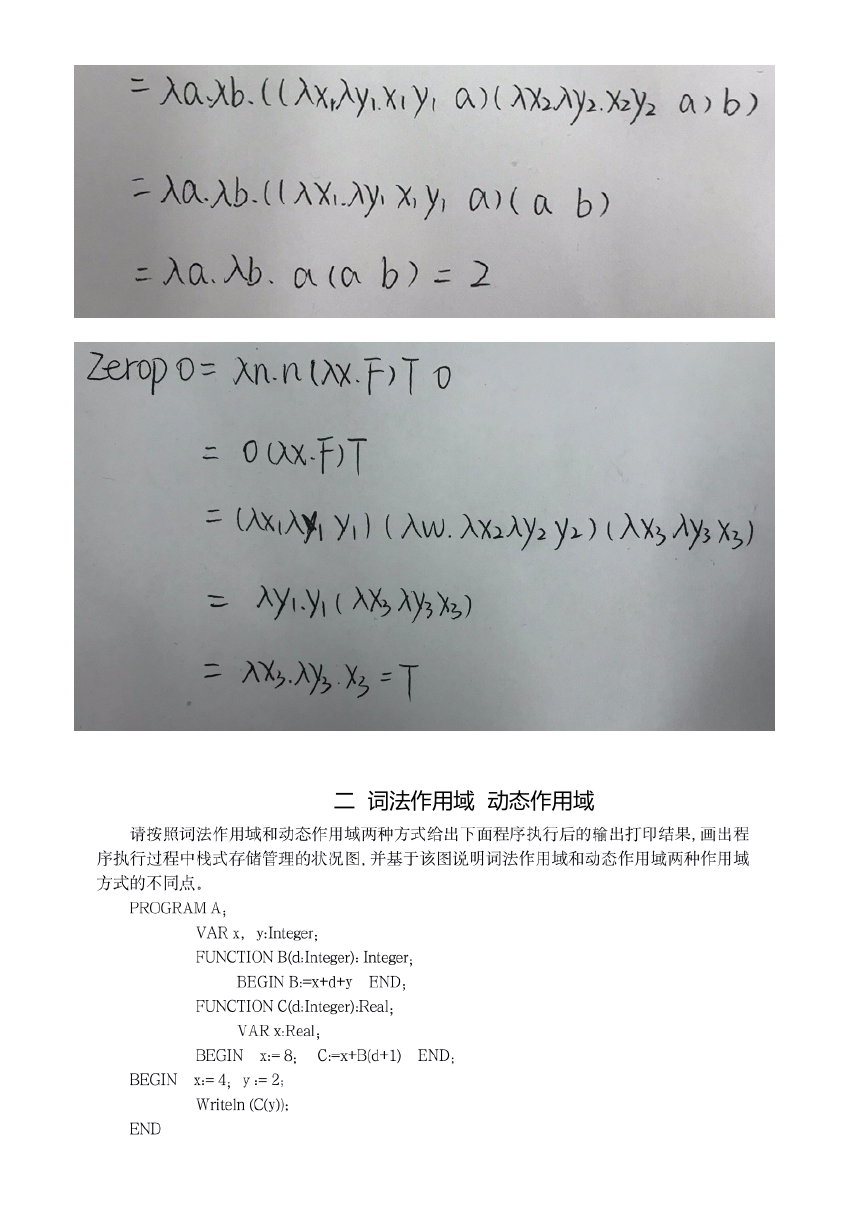 = λa.λb.((λx₁.λy₁.x₁y₁ a)(λx₂.λy₂.x₂y₂ a)b)
= λa.λb.((λx₁.λy₁ x₁y₁ a)(a b)
= λa.λb. a(a b) = 2
Zerop 0 = λn.n(λx.F)T 0
= 0(λx.F)T
= (λx₁λy₁ y₁)(λw.λx₂λy₂ y₂)(λx₃λy₃ x₃)
= λy₁.y₁(λx₃λy₃x₃)
= λx₃.λy₃.x₃ = T
二 词法作用域 动态作用域
请按照词法作用域和动态作用域两种方式给出下面程序执行后的输出打印结果,画出程
序执行过程中栈式存储管理的状况图,并基于该图说明词法作用域和动态作用域两种作用域
方式的不同点。
PROGRAM A;
VAR x, y:Integer;
FUNCTION B(d:Integer): Integer;
BEGIN B:=x+d+y END;
FUNCTION C(d:Integer):Real;
VAR x:Real;
BEGIN x:= 8; C:=x+B(d+1) END;
BEGIN x:= 4; y := 2;
Writeln (C(y));
END